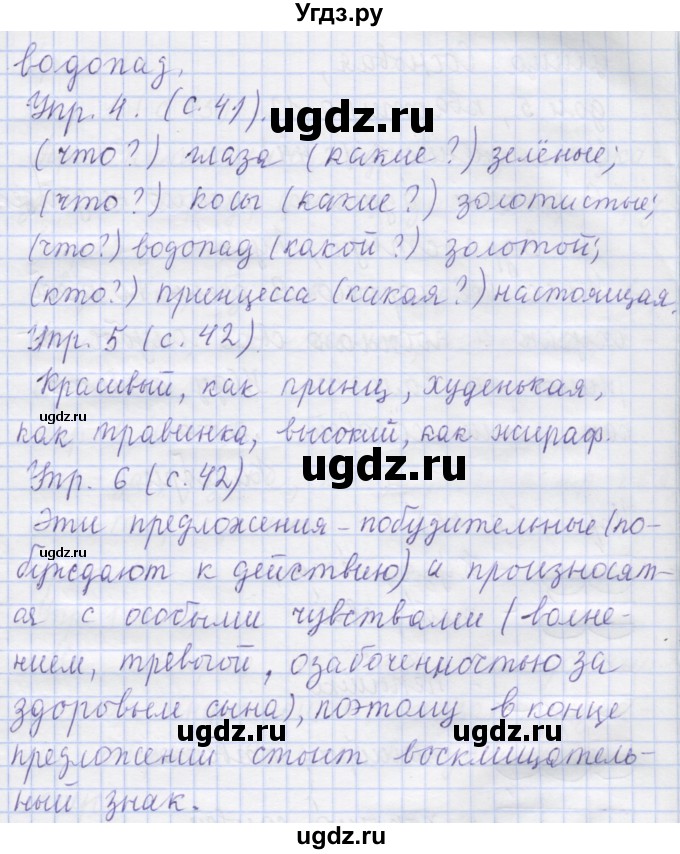 Угдз.ру
водопад.
Упр. 4. (с. 41).
ugdz.ru
(что?) глаза (какие?) зелёные;
(что?) косы (какие?) золотистые;
ugdz.ru
(что?) водопад (какой?) золотой;
(кто?) принцесса (какая?) настоящая.
Упр. 5 (с. 42)
Красивый, как принц, худенькая,
ugdz.ru
как травинка, высокий, как жираф.
Упр. 6 (с. 42)
ugdz.ru
Эти предложения - побудительные (по-
ugdz.ru
буждают к действию) и произносят-
ся с особыми чувствами (волне-
нием, тревогой, озабоченностью за
здоровьем сына), поэтому в конце
ugdz.ru ugdz.ru
предложений стоит восклицатель-
ный знак.
ugdz.ru